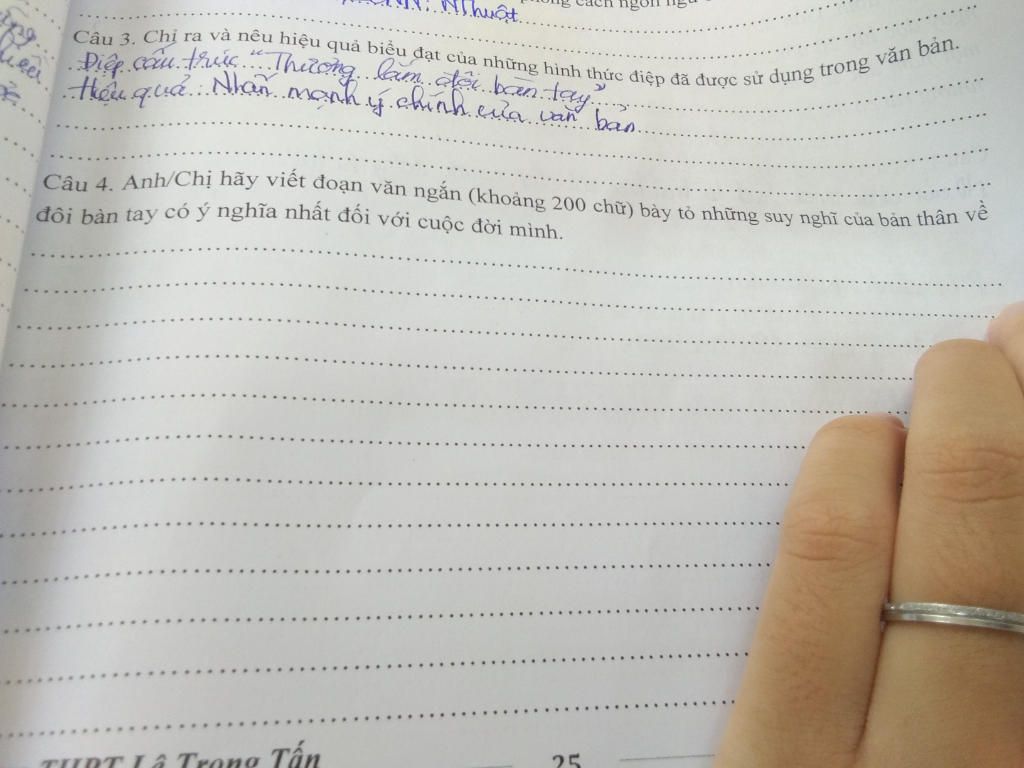 NThuật
Câu 3. Chỉ ra và nêu hiệu quả biểu đạt của những hình thức điệp đã được sử dụng trong văn bản.
Điệp cấu trúc "Thương lắm đôi bàn tay"
Hiệu quả Nhấn mạnh ý chính của văn bản
Câu 4. Anh/Chị hãy viết đoạn văn ngắn (khoảng 200 chữ) bày tỏ những suy nghĩ của bản thân về
đôi bàn tay có ý nghĩa nhất đối với cuộc đời mình.
THPT Lê Trọng Tấn 25